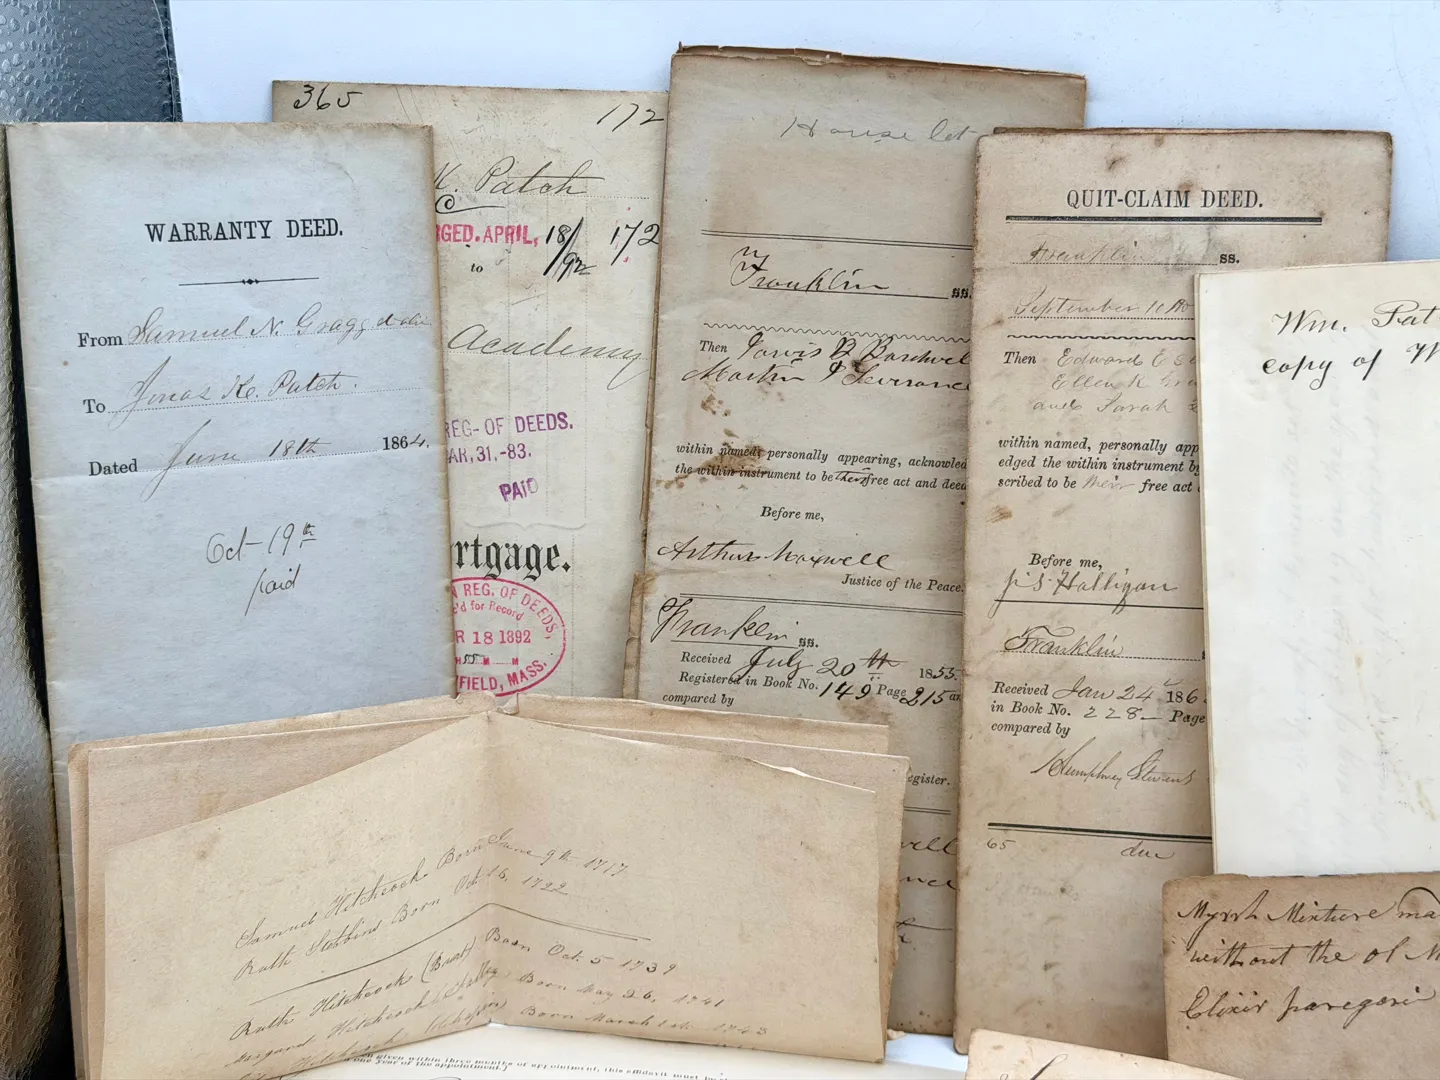 WARRANTY DEED.
From Samuel N. Gragg
To Jonas K. Patch.
Dated June 18th 1864.
Oct - 19th
paid
365
172
K. Patch
RGED. APRIL, 18/92 172
to
Academy
REG- OF DEEDS.
AR, 31,-83.
PAID
rtgage.
N REG. OF DEEDS,
'd for Record
R 18 1892
FIELD, MASS.
House lot
Franklin ss.
Then Jarvis B Bardwel
Martin Severance
within named, personally appearing, acknowled
the within instrument to be their free act and deed
Before me,
Arthur Maxwell
Justice of the Peace.
Franklin ss.
Received July 20th 1855.
Registered in Book No. 149 Page 215 an
compared by
egister.
QUIT-CLAIM DEED.
Franklin ss.
September 10
Then Edward E
Ellen K
and Sarah
within named, personally app
edged the within instrument by
scribed to be their free act
Before me,
Halligan
Franklin
Received Jan 24 186
in Book No. 228 Page
compared by
Humphrey Stevens
65
due
Wm. Pat
copy of W
Samuel Hitchcock Born June 9th 1717
Ruth Stebbins Born Oct. 16. 1722
Ruth Hitchcock (Burt) Born Oct. 5 1739
Margaret Hitchcock Born May 26, 1741
Hitchcock Born March 1st 1743
given within three months of appointment, this affidavit must be
one year of the appointment.]
Myrrh Mixture ma
without the ol M
Elixir paregoric